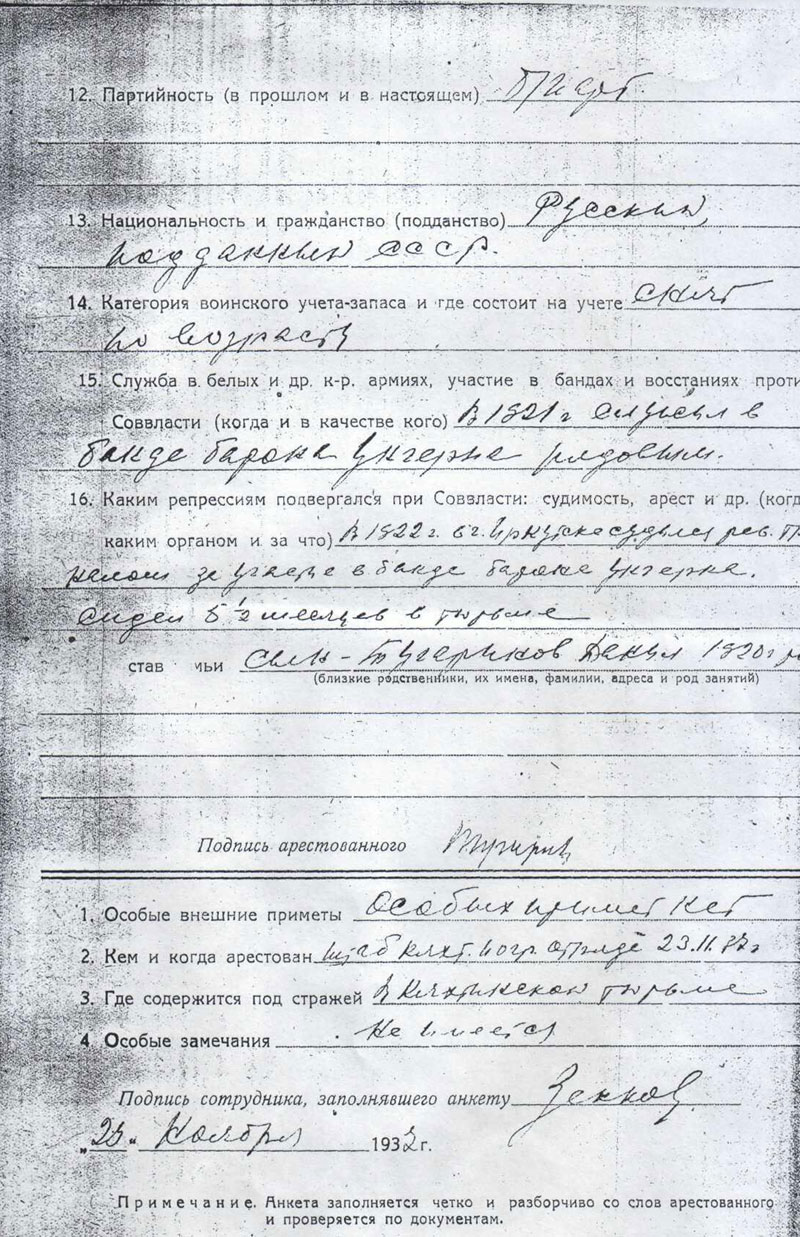 12. Партийность (в прошлом и в настоящем) Б/парт.
13. Национальность и гражданство (подданство) Русский,
подданный СССР.
14. Категория воинского учета-запаса и где состоит на учете снят
по возрасту
15. Служба в белых и др. к-р. армиях, участие в бандах и восстаниях проти
Соввласти (когда и в качестве кого) в 1921 г служил в
банде барона Унгерна рядовым.
16. Каким репрессиям подвергался при Соввласти: судимость, арест и др. (когд
каким органом и за что) в 1922 г. в г. Иркутске судился рев. Т
налом за участие в банде барона Унгерна.
сидел 5 1/2 месяцев в тюрьме
став мьи сын - Тугариков 1920 г
(близкие родственники, их имена, фамилии, адреса и род занятий)
Подпись арестованного
1. Особые внешние приметы Особых примет нет
2. Кем и когда арестован штаб Кяхт. погр. отряда 23.11.37 г
3. Где содержится под стражей В Кяхтинской тюрьме
4 Особые замечания не имеется
Подпись сотрудника, заполнявшего анкету
„23“ Ноября 193 г.
Примечание. Анкета заполняется четко и разборчиво со слов арестованного
и проверяется по документам.